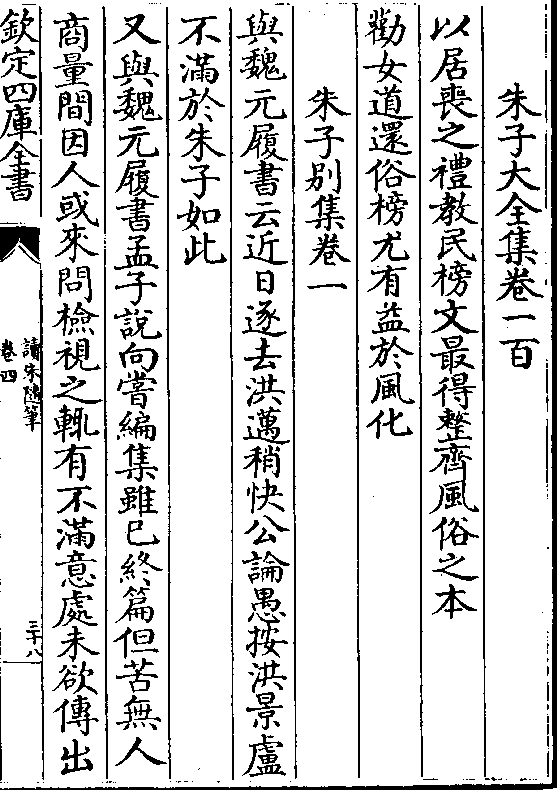 朱子大全集卷一百
以居喪之禮教民榜文最得整齊風俗之本
勸女道還俗榜尤有益於風化
朱子别集卷一
與魏元履書云近日逐去洪邁稍快公論愚按洪景盧
不滿於朱子如此
又與魏元履書孟子說向嘗編集雖已終篇但苦無人
商量間因人或來問檢視之輒有不滿意處未欲傳出
欽定四庫全書
讀朱隨筆
卷四
三十八